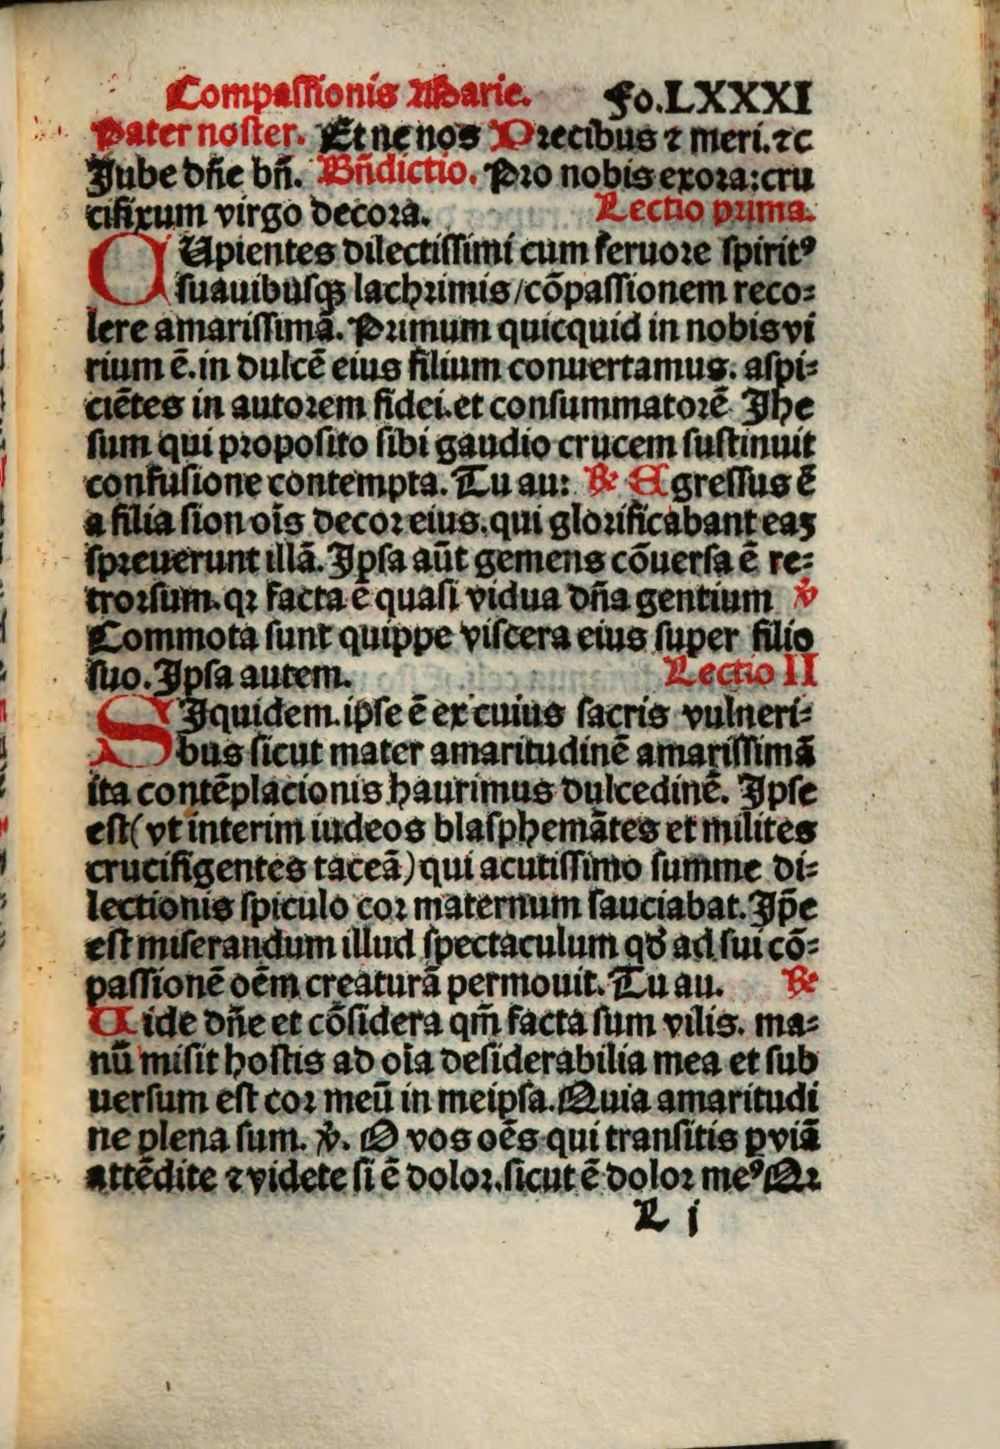 Compassionis Marie. Fo.LXXXI
Pater noster. Et ne nos Precibus ⁊ meri.⁊c
Jube dn̄e bn̄. Bn̄dictio. Pro nobis exora:cru
cifixum virgo decora. Lectio prima.
CUpientes dilectissimi cum feruore spiritꝰ
suauibusqꝫ lachrimis/cōpassionem reco⸗
lere amarissimā. Primum quicquid in nobis vi
rium ē.in dulcē eius filium conuertamus. aspi⸗
ciētes in autorem fidei.et consummatorē Jhe
sum qui proposito sibi gaudio crucem sustinuit
confusione contempta. Tu au: ℞ Egressus ē
a filia sion oīs decor eius.qui glorificabant eaꝫ
spreuerunt illā. Jpsa aūt gemens cōuersa ē re⸗
trorsum.qꝛ facta ē quasi vidua dn̄a gentium ℣
Commota sunt quippe viscera eius super filio
suo. Jpsa autem. Lectio II
SJquidem.ipse ē ex cuius sacris vulneri⸗
bus sicut mater amaritudinē amarissimā
ita contēplacionis haurimus dulcedinē. Jpse
est(vt interim iudeos blasphemātes et milites
crucifigentes taceā)qui acutissimo summe di⸗
lectionis spiculo cor maternum sauciabat.Jp̄e
est miserandum illud spectaculum qđ ad sui cō⸗
passionē oēm creaturā permouit. Tu au. ℞
Uide dn̄e et cōsidera qm̄ facta sum vilis. ma⸗
nū misit hostis ad oīa desiderabilia mea et sub
uersum est cor meū in meipsa.Quia amaritudi
ne plena sum. ℣. O vos oēs qui transitis ꝑ viā
attēdite ⁊ videte si ē dolor.sicut ē dolor meꝰ Qꝛ
L j